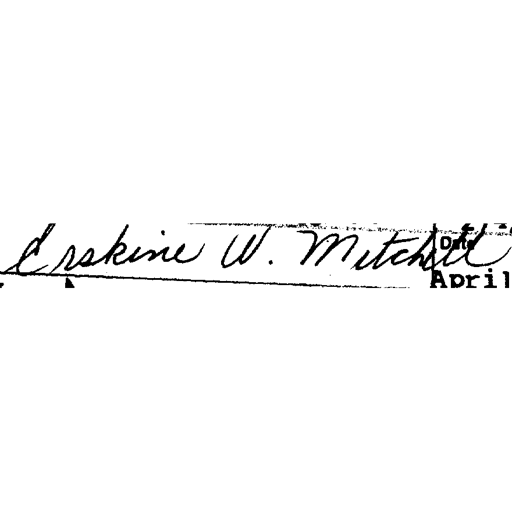 Erskine W. Mitchell
Date
April